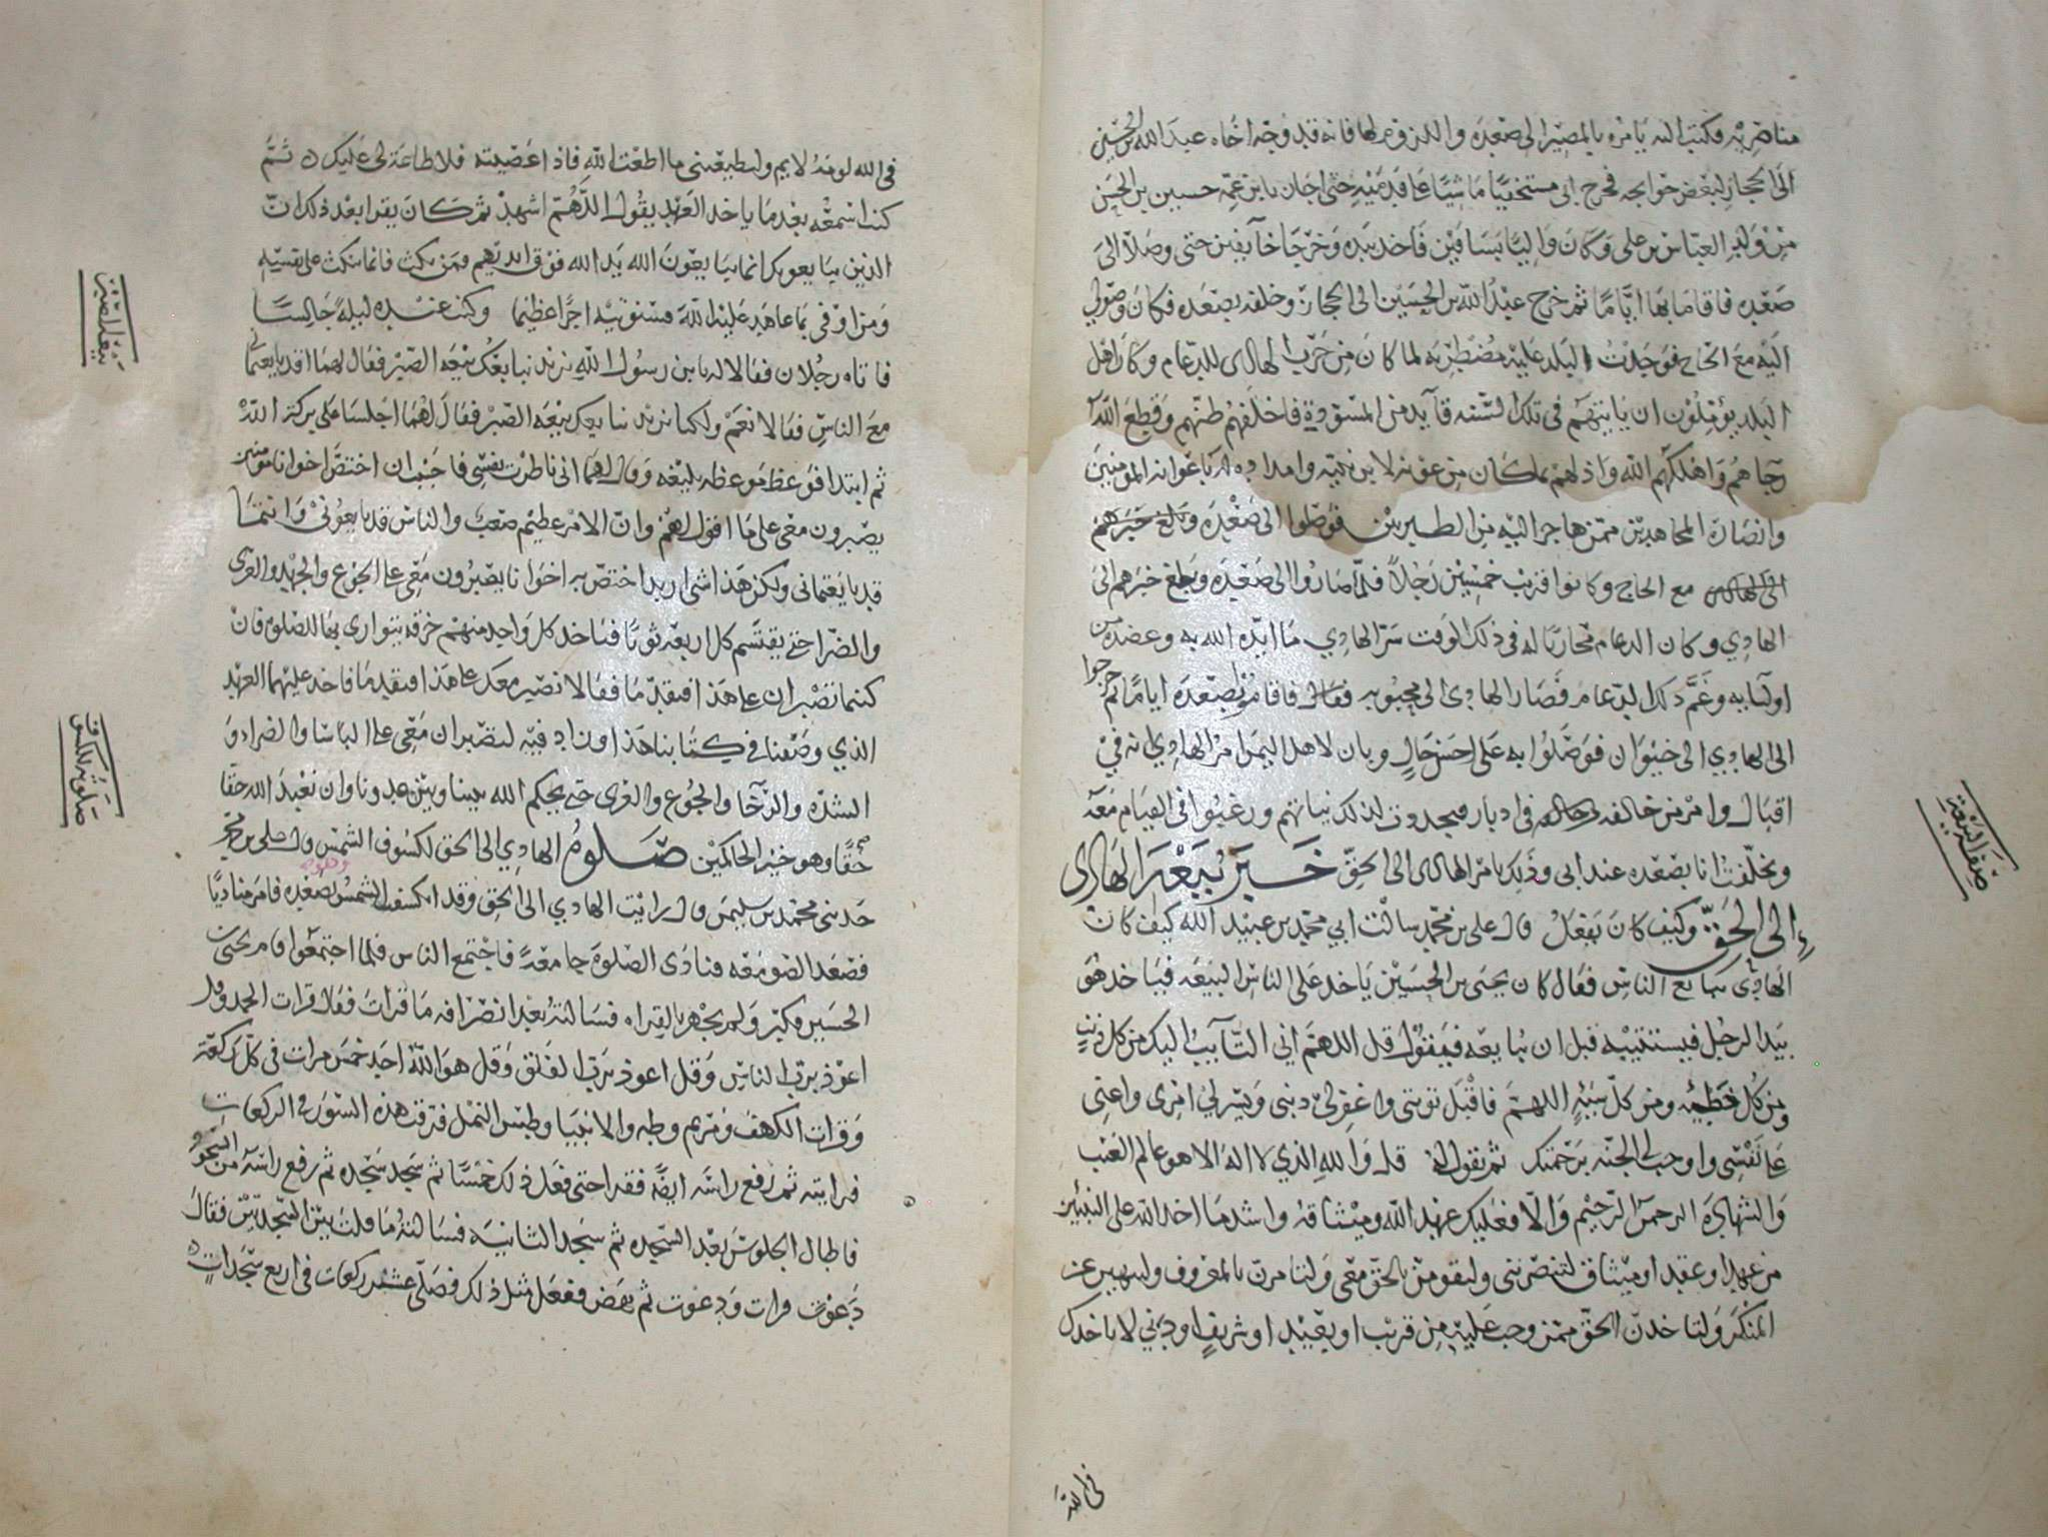 مناصريه فكتب اليه يامره بالمصير الى صعده واللزوم لها فانه قد وجه اخاه عبد الله بن الحسين
الى الحجاز لبعض حوايجه فخرج ابي مستخفيا ماشيا على قدميه حتى اجان يا بن عمه حسين بن الحسن
من ولد العباس بن علي وكان واليا بسافين فاخذ بيده وخرجا خايفين حتى وصلا الى
صعده فاقاما بها اياما ثم خرج عبد الله بن الحسين الى الحجاز وخلفه بصعده فكان وصولي
اليه مع الحاج فوجدت البلد عليه مضطربه لما كان من حرب الهادى للدعام وكان اهل
البلد يؤملون ان ياتيهم في تلك السنه قايد من المسودة فاخلفهم ظنهم وقطع الله
رجاهم واهلكهم الله واذلهم بما كان من عونه لابن نبيه وامداده له باعوانه المومنين
وانصاره المجاهدين ممن هاجر اليه من الطبريين فوصلوا الى صعده وبلغ خبرهم
الى الهادي مع الحاج وكانوا قريب خمسين رجلا فلما صاروا الى صعده وبلغ خبرهم الى
الهادي وكان الدعام محاربا له في ذلك الوقت سر الهادي ما ايده الله به وعضده من
اوليايه وغم ذلك الدعام فصار الهادى الى محبوبه فقال فاقاموا بصعده اياما ثم خرجوا
الى الهادي الى خيوان فوصلوا به على احسن حال وبان لاهل اليمن امر الهادي انه في
اقبال وامر من خالفه في ادبار فيجددون لذلك نياتهم ورغبوا في القيام معه
وتخلفت انا بصعده عند ابي وذلك بامر الهادى الى الحق خبر بيعة الهادى
الى الحق وكيف كان يفعل قال علي بن محمد سالت ابي محمد بن عبيد الله كيف كان
الهادي يبايع الناس فقال كان يحيى بن الحسين ياخذ على الناس البيعه فياخذ هو
بيد الرجل فيستتيبه قبل ان يبايعه فيقول قل اللهم اني التآيب اليك من كل ذنب
ومن كل خطيئه ومن كل سيئه اللهم فاقبل توبتي واغفر لي ذنبي ويسر لي امري واعني
على نفسي واوجب لي الجنه برحمتك ثم يقول له قل والله الذي لا اله الا هو عالم الغيب
والشهادة الرحمن الرحيم والا فعليك عهد الله وميثاقه واشد ما اخذ الله على النبيين
من عهد او عقد او ميثاق لتنصرنني ولتقومن بالحق معي ولتامرن بالمعروف ولتنهين عن
المنكر ولتاخذن الحق ممن وجب عليه من قريب او بعيد او شريف او دني لا ياخذك
في الله
صفة البيعة
في الله لومة لايم ولتطيعنني ما اطعت الله فاذا عصيته فلا طاعة لي عليك ثم
كنت اسمعه بعد ما ياخذ العهد يقول اللهم اشهد ثم كان يقرا بعد ذلك ان
الذين يبايعونك انما يبايعون الله يد الله فوق ايديهم فمن نكث فانما ينكث على نفسه
ومن اوفى بما عاهد عليه الله فسنوتيه اجرا عظيما وكنت عنده ليله جالسا
فاتاه رجلان فقالا له يا بن رسول الله نريد نبايعك بيعه الصبر فقال لهما قد بايعتماني
مع الناس فقالا نعم ولكنا نريد نبايعك بيعه الصبر فقال لهما اجلسا على بركة الله
ثم ابتدا فوعظ موعظه بليغه وقال لهما اني ناظرت نفسي فاحببت ان اختص اخوانا مومنين
يصبرون معي على ما اقول لهم وان الامر عظيم صعب والناس قد بايعوني وانتما
قد بايعتماني ولكن هذا شي اريد اختص به اخوانا يصبرون معي على الجوع والجهد والعرى
والضر احتى يقتسم كل اربعه ثوبا فياخذ كل واحد منهم خرقه يتوارى بها للصلوه فان
كنتما تصبران على هذا فتقدما فقالا نصبر معك على هذا فتقدما فاخذ عليهما العهد
الذي وصفنا في كتابنا هذا وزاد فيه لتصبران معي على الباسا والضراء و
الشده والرخا والجوع والعرى حتى يحكم الله بيننا وبين عدونا وان نعبد الله حقا
حقا وهو خير الحاكمين صلوة الهادي الى الحق لكسوف الشمس قال علي بن محمد
حدثني محمد بن سليمن قال رايت الهادي الى الحق وقد انكسفت الشمس بصعده فامر مناديا
فصعد الصومعه فنادى الصلوة جامعة فاجتمع الناس فلما اجتمعوا قام يحيى بن
الحسين وكبر ولم يجهر بالقراه فسالته بعد انصرافه ما قرات فقال قرات الحمد وقل
اعوذ برب الناس وقل اعوذ برب الفلق وقل هو الله احد خمس مرات في كل ركعة
وقرات الكهف ومريم وطه والانبيا وطس النمل فرقت هذه السور في الركعات
فرايته ثم رفع راسه ايضا فقرا حتى فعل ذلك خمسا ثم سجد سجده ثم رفع راسه من السجود
فاطال الجلوس بعد السجده ثم سجد الثانيه فسالته ما قلت بين السجدتين فقال
دعوت قرات ودعوت ثم نهض ففعل مثل ذلك فصلى عشر ركعات في اربع سجدات
بيعة الصبر
صلوته للكسوف